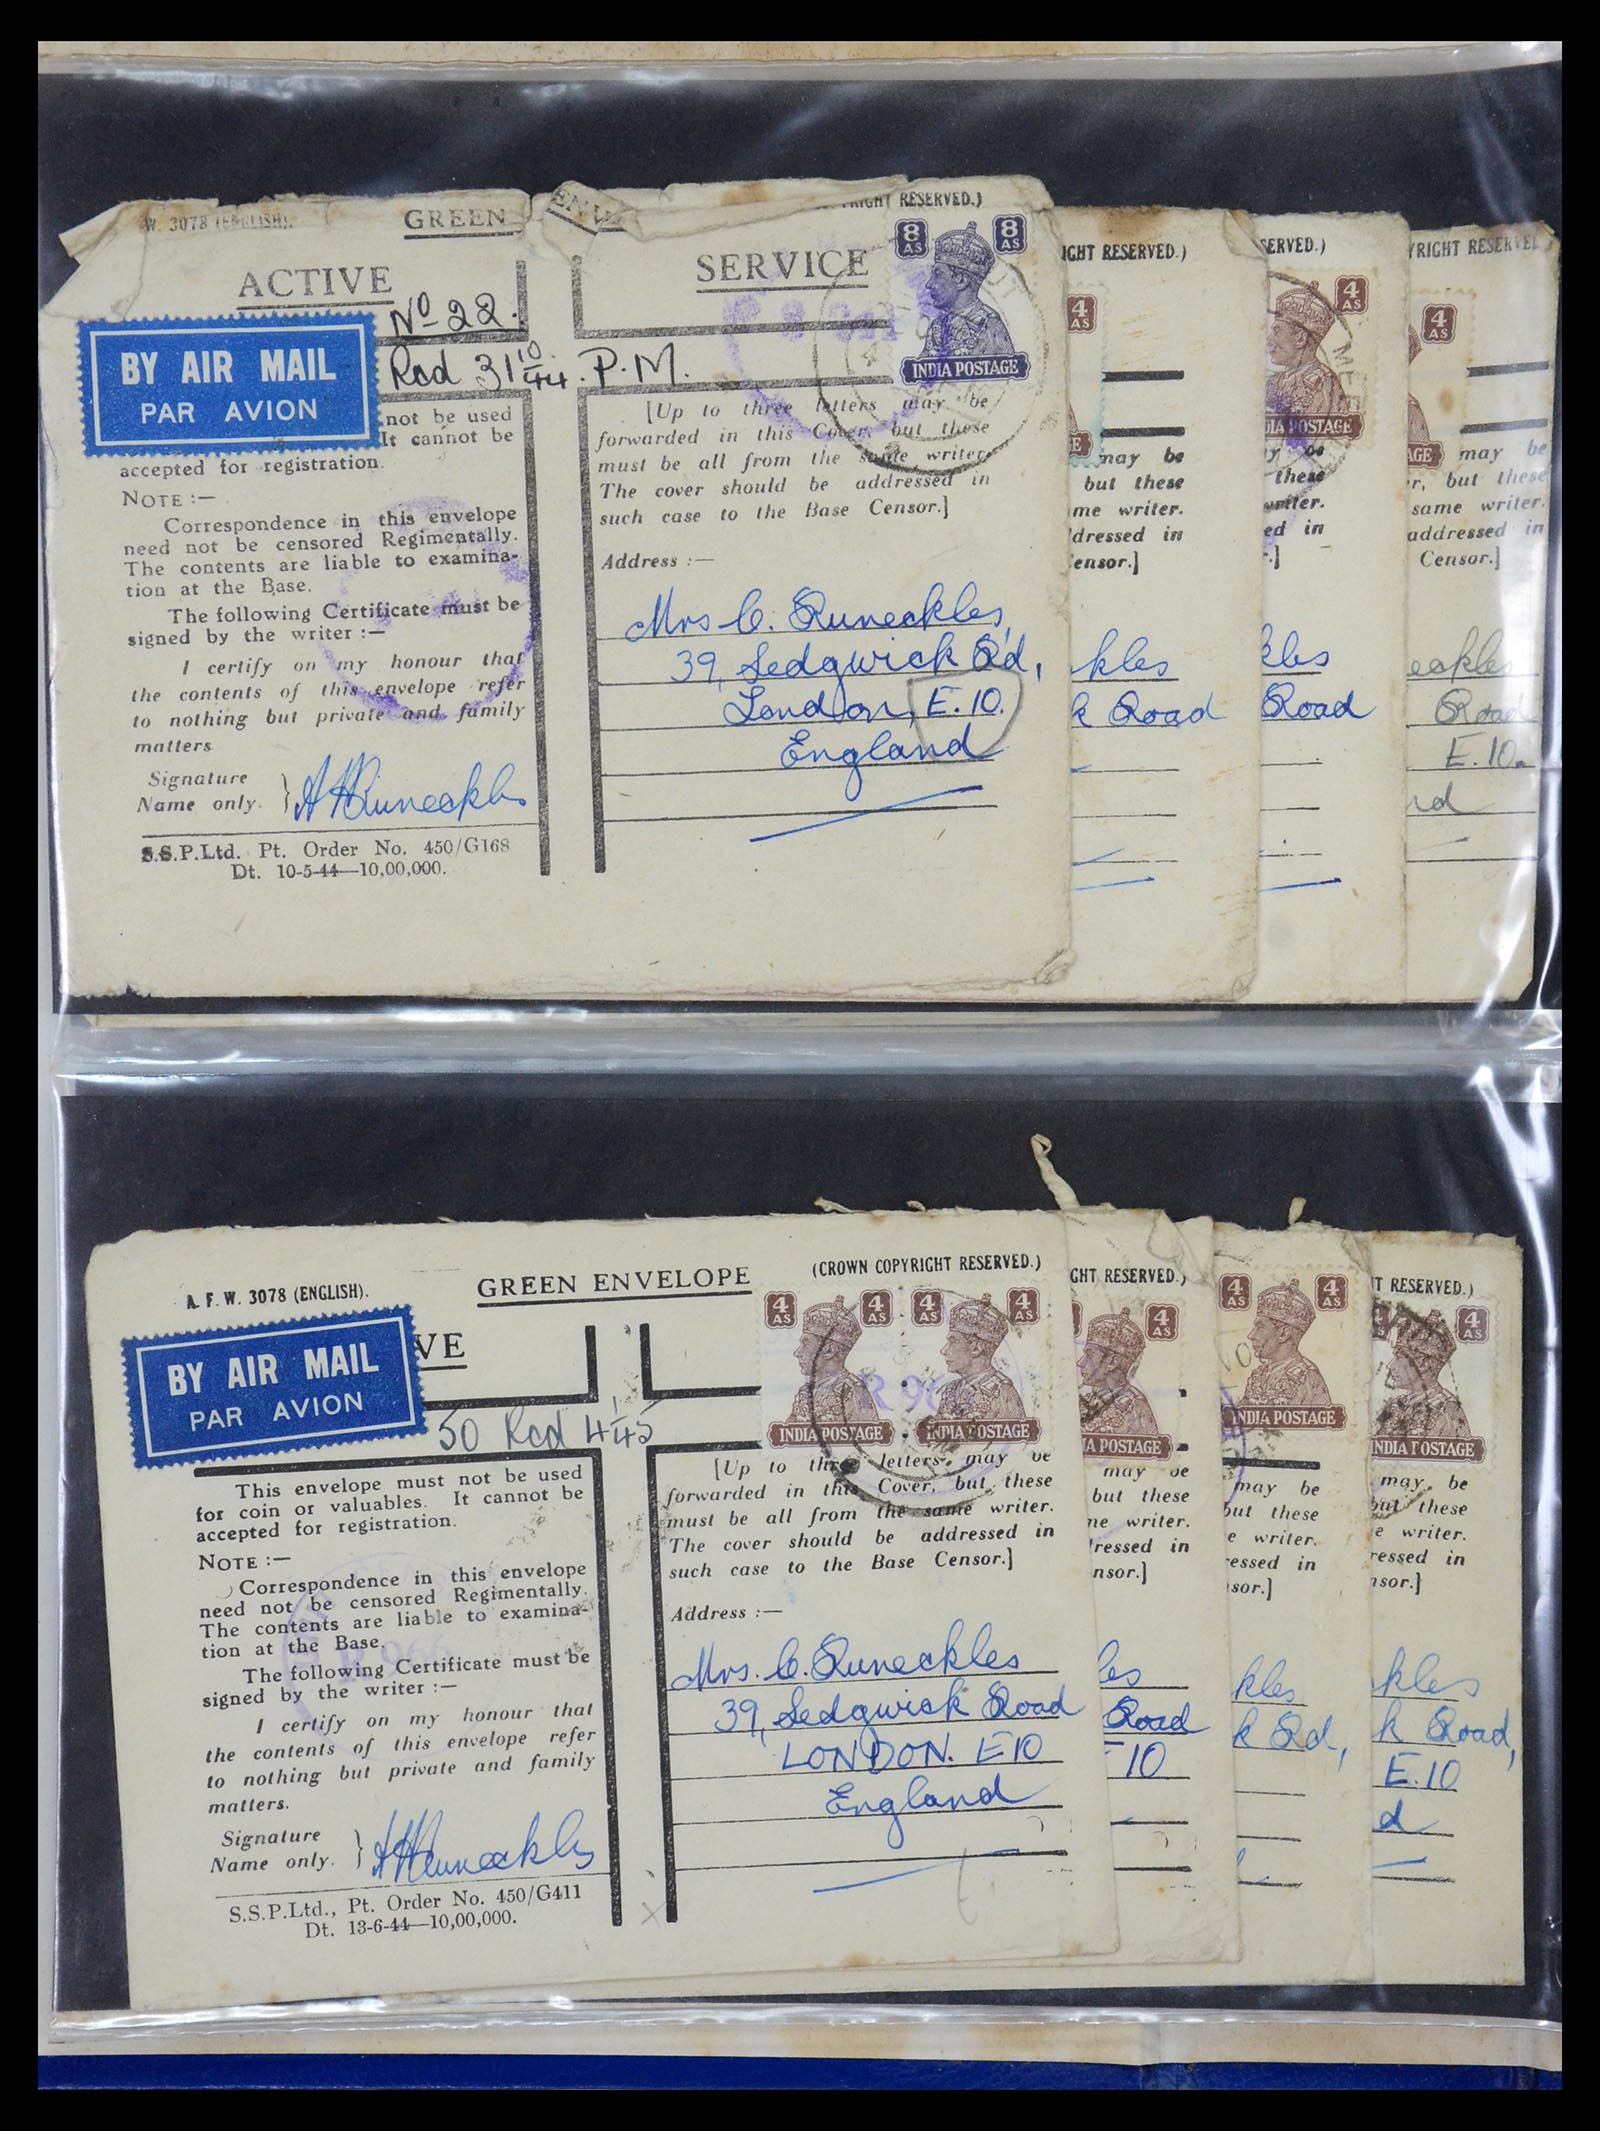 W. 3078 (ENGLISH).
GREEN
RIGHT RESERVED.)
8 AS
8 AS
ACTIVE
SERVICE
No 22.
INDIA POSTAGE
BY AIR MAIL
PAR AVION
Rcd 31 10/44. P.M.
not be used
It cannot be
accepted for registration.
NOTE :—
Correspondence in this envelope
need not be censored Regimentally.
The contents are liable to examina-
tion at the Base.
The following Certificate must be
signed by the writer :—
I certify on my honour that
the contents of this envelope refer
to nothing but private and family
matters
Signature
Name only. } A H Runeckles
S.S.P.Ltd. Pt. Order No. 450/G168
Dt. 10-5-44—10,00,000.
[Up to three letters may be
forwarded in this Cover, but these
must be all from the same writer.
The cover should be addressed in
such case to the Base Censor.]
Address :—
Mrs C. Runeckles,
39, Sedgwick Rd,
London, E.10.
England
IGHT RESERVED.)
4 AS
E
may be
but these
me writer.
ddressed in
Censor.]
kles
k Road
SERVED.)
4 AS
DIA POSTAGE
these
writer.
ed in
r.]
kles
Road
YRIGHT RESERVED
4 AS
AGE
may be
r, but these
same writer.
addressed in
Censor.]
eckles
Road
E.10.
nd
A. F. W. 3078 (ENGLISH).
GREEN ENVELOPE
(CROWN COPYRIGHT RESERVED.)
VE
4 AS
4 AS
4 AS
4 AS
INDIA POSTAGE
INDIA POSTAGE
BY AIR MAIL
PAR AVION
50 Rcd 4/1/45
This envelope must not be used
for coin or valuables. It cannot be
accepted for registration.
NOTE :—
Correspondence in this envelope
need not be censored Regimentally.
The contents are liable to examina-
tion at the Base.
The following Certificate must be
signed by the writer :—
I certify on my honour that
the contents of this envelope refer
to nothing but private and family
matters.
Signature
Name only. } A H Runeckles
S.S.P.Ltd., Pt. Order No. 450/G411
Dt. 13-6-44—10,00,000.
[Up to three letters may be
forwarded in this Cover, but these
must be all from the same writer.
The cover should be addressed in
such case to the Base Censor.]
Address :—
Mrs. C. Runeckles
39, Sedgwick Road
LONDON. E10
England
GHT RESERVED.)
4 AS
IA POSTAGE
may be
but these
me writer.
dressed in
nsor.]
les
Road
E10
4 AS
4 AS
INDIA POSTAGE
may be
but these
e writer.
ressed in
sor.]
kles
k Rd,
HT RESERVED.)
4 AS
INDIA POSTAGE
may be
but these
e writer.
ressed in
nsor.]
kles
k Road,
E.10
d